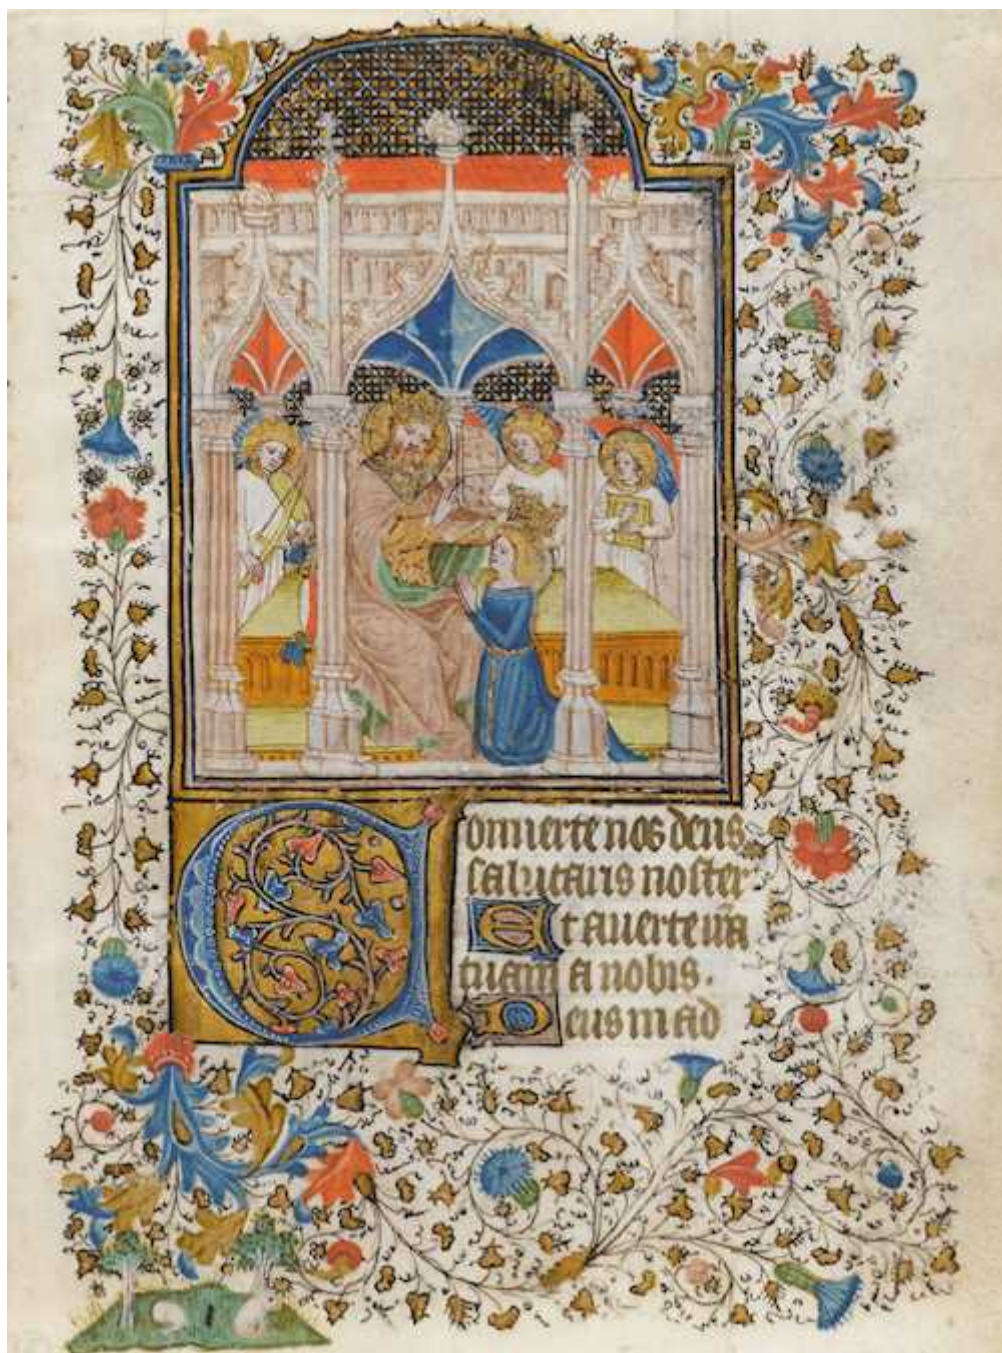 Conuerte nos deus
salutaris noster
Et auerte irã
tuam a nobis.
Deus in ad